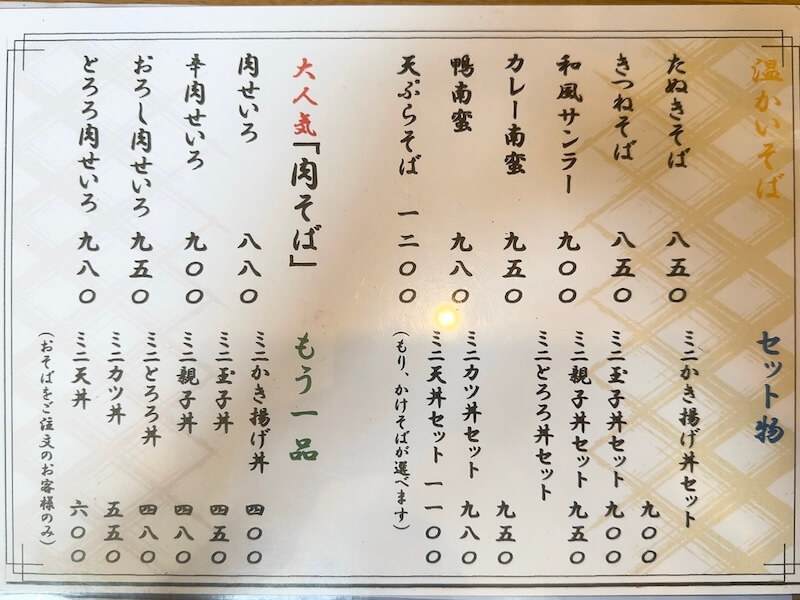 温かいそば
たぬきそば 八五〇
きつねそば 八五〇
和風サンラー 九〇〇
カレー南蛮 九五〇
鴨南蛮 九八〇
天ぷらそば 一二〇〇
大人気「肉そば」
肉せいろ 八八〇
辛肉せいろ 九〇〇
おろし肉せいろ 九五〇
とろろ肉せいろ 九八〇
セット物
ミニかき揚げ丼セット 九〇〇
ミニ玉子丼セット 九〇〇
ミニ親子丼セット 九五〇
ミニとろろ丼セット 九五〇
ミニカツ丼セット 九八〇
ミニ天丼セット 一一〇〇
(もり、かけそばが選べます)
もう一品
ミニかき揚げ丼 四〇〇
ミニ玉子丼 四五〇
ミニ親子丼 四八〇
ミニとろろ丼 四八〇
ミニカツ丼 五五〇
ミニ天丼 六〇〇
(おそばをご注文のお客様のみ)